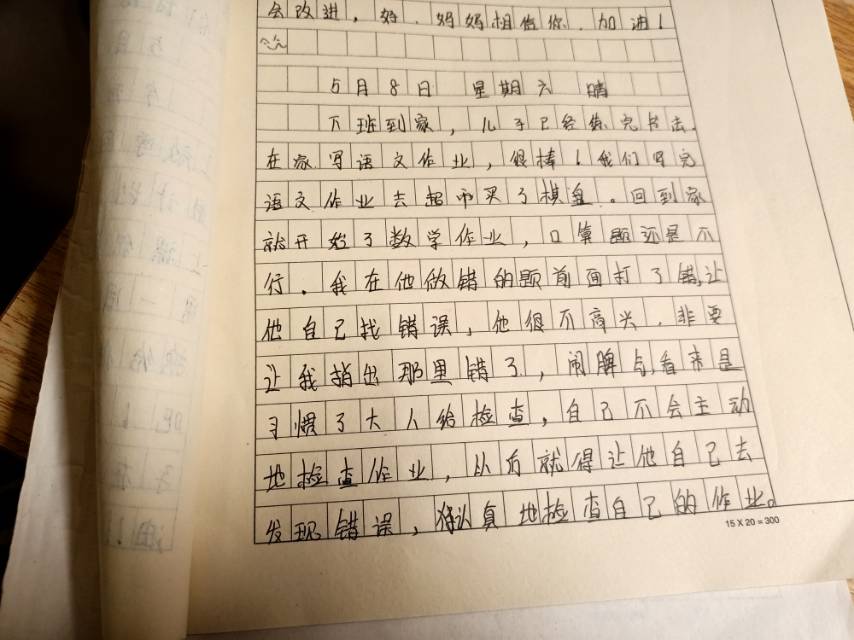 会改进，好，妈妈相信你，加油！
5月8日 星期六 晴
下班到家，儿子已经练完书法，
在家写语文作业，很棒！我们写完
语文作业去超市买了棋盘。回到家
就开始了数学作业，口算题还是不
行。我在他做错的题前面打了错，让
他自己找错误，他很不高兴，非要
让我指出那里错了，闹脾气，看来是
习惯了大人给检查，自己不会主动
地检查作业，从后就得让他自己去
发现错误，认真地检查自己的作业。
15 X 20 = 300